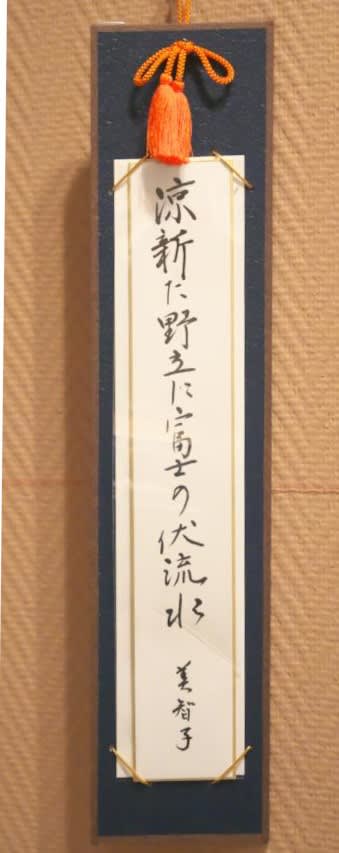 涼新た野立に富士の伏流水
美智子